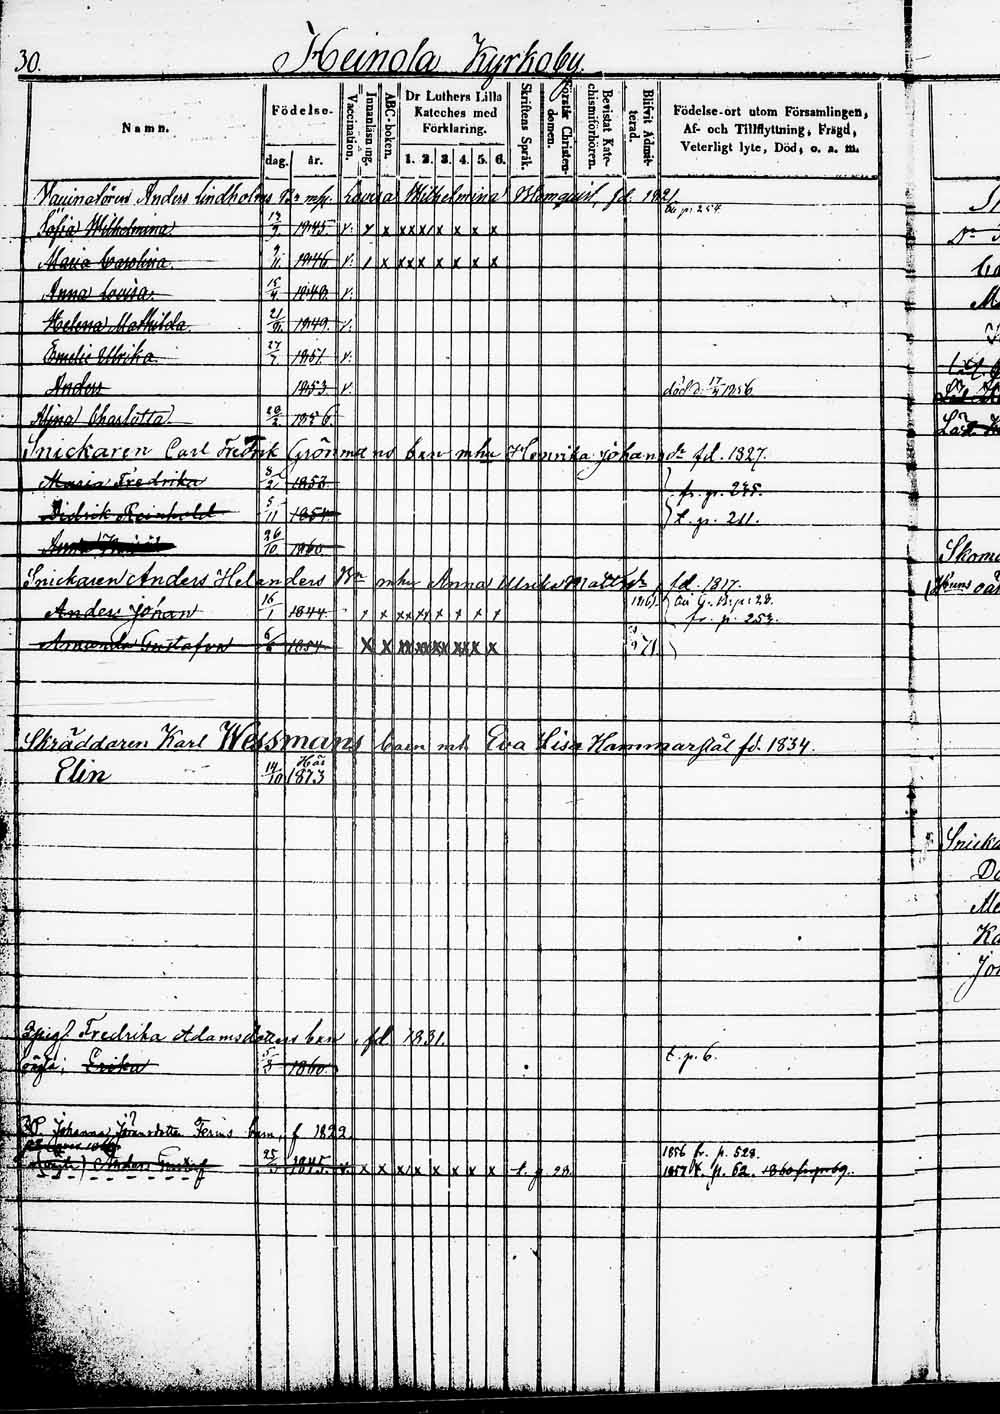 30. Heinola Kyrkoby.
Namn.
Födelse-
dag. år.
Vaccination.
Innanläsning.
ABC-boken.
Dr Luthers Lilla
Kateches med
Förklaring.
1. 2. 3. 4. 5. 6.
Skriftens Språk.
Förstår Christendomen.
Bevistat Katechismiförhören.
Blifvit Admitterad.
Födelse-ort utom Församlingen,
Af- och Tillflyttning, Frägd,
Veterligt lyte, Död, o. a. m.
Anders Lindholms Bn m. Lovisa Wilhelmina fd. 1821
p. 254
Sofia Wilhelmina 1845 v. x x x x x x x x
Maria Carolina 9/11 1846 v. x x x x x x x
Anna Lovisa 15/4 1848 v.
Helena Mathilda 21/9 1849 v.
Emelie Ulrika 27/7 1851 v.
Anders 1853 v. död d. 17/4 1856
Alina Charlotta 29/2 1856
Snickaren Carl Fredrik Grönmans barn mhu Henrika Johansdr fd. 1827.
Maria Fredrika 8/2 1853
fr. p. 235.
Didrik Reinhold 5/11 1854 t. p. 211.
Anna 26/10 1860
Snickaren Anders Helanders Bn mhu Anna Ulrika Mattsdr fd. 1817.
Anders Johan 16/1 1844 x x x x x x x x
fr. p. 253.
Amanda Gustafva 6/6 1854 x x x x x x x x 71
Skräddaren Karl Wessmans barn mh. Eva Lisa Hammarstål fd. 1834.
Elin 14/10 1873
Fredrika Adamsdotters barn, fd 1831.
oägta; Erika 5/3 1860 t. p. 6.
Johanna Göransdotter barn, f 1822
1856 fr. p. 528.
(oägta) Anders Gustaf 25/3 1845 v. x x x x x x x x t. p. 28 1857 t. p. 62. 1860 fr. p. 69.
Snicka
Da
Ale
Ka
Jo